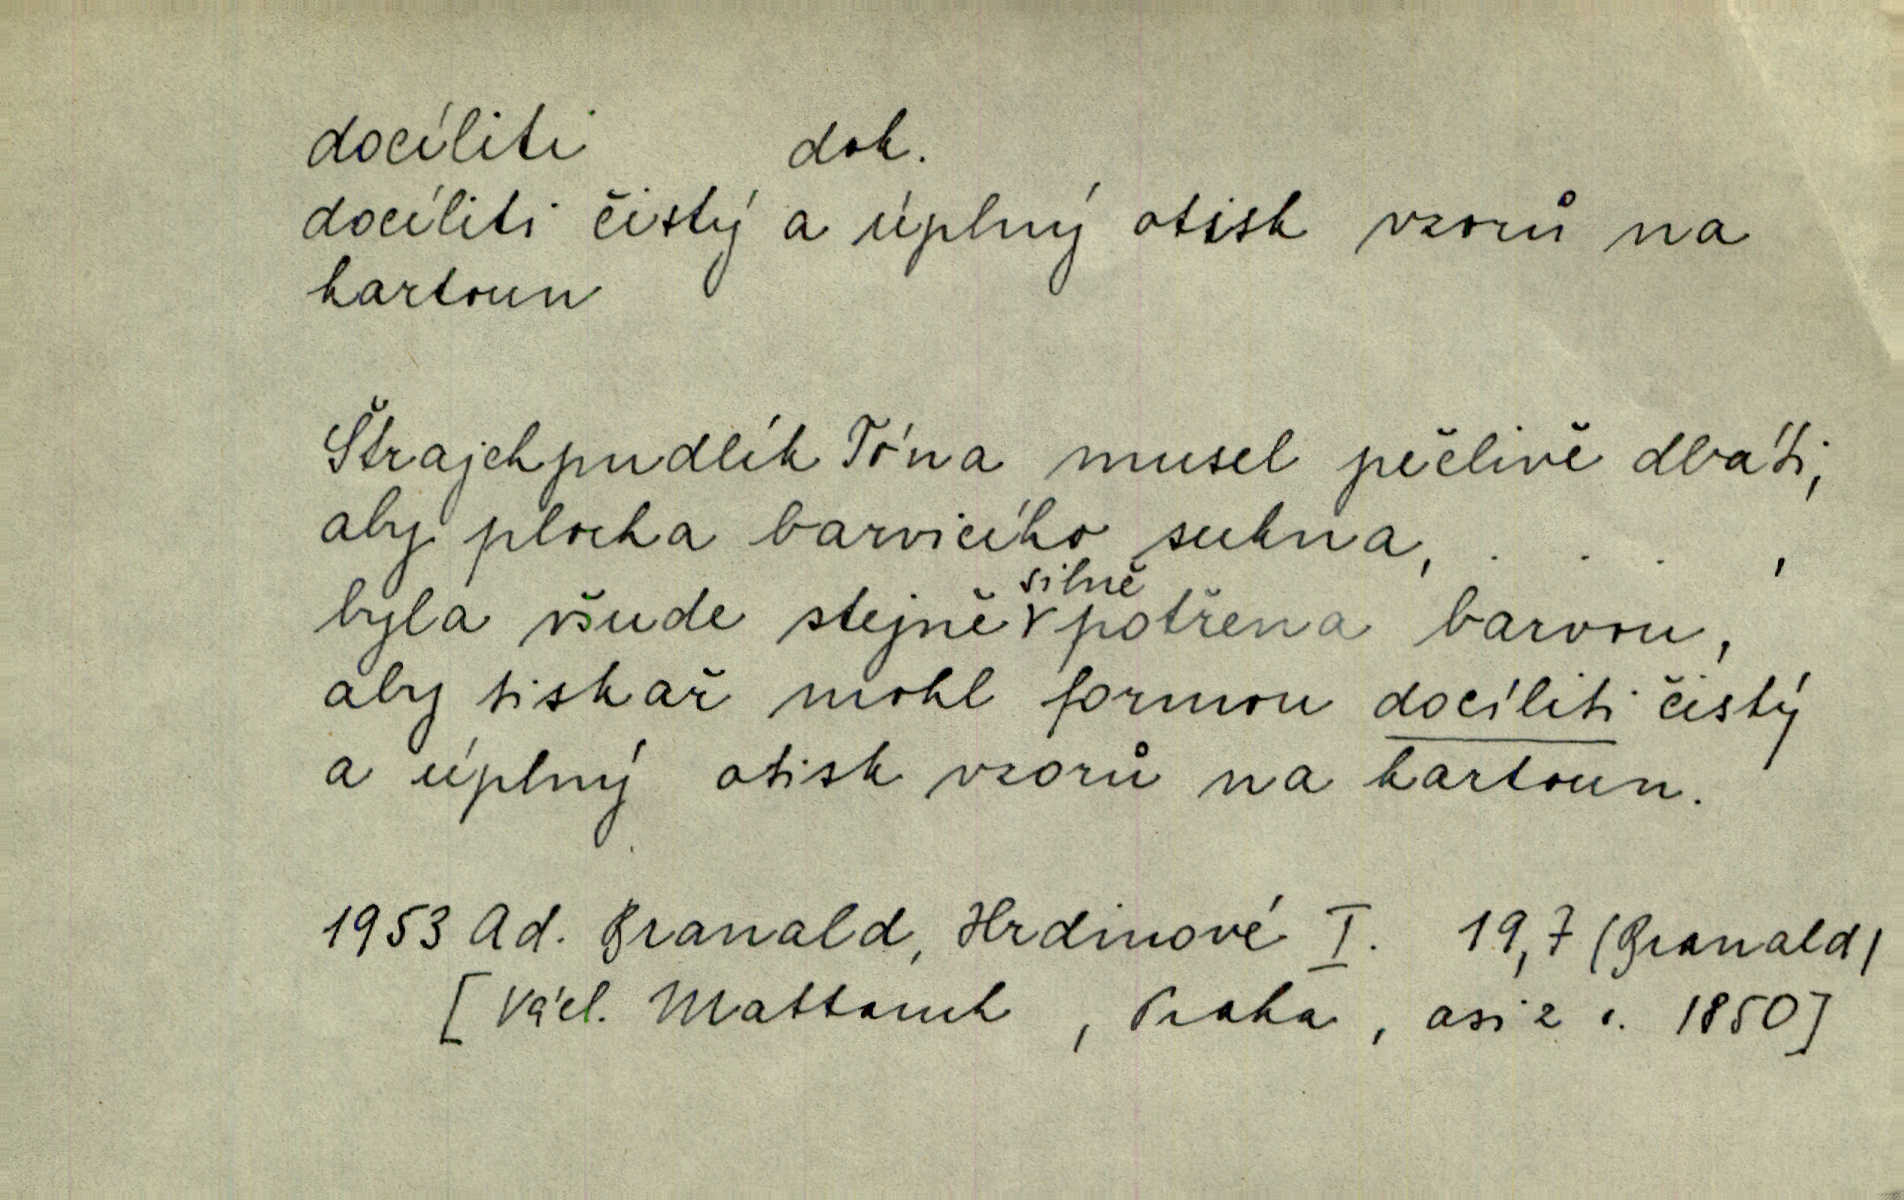 docíliti dok.
docíliti čistý a úplný otisk vzorů na
kartoun
Štrajchpudlík Tóna musel pěčlivě dbáti,
aby plocha barvicího sukna, . . . ,
byla všude stejně silně potřena barvou,
aby tiskař mohl formou docíliti čistý
a úplný otisk vzorů na kartoun.
1953 Ad. Branald, Hrdinové I. 19,7 (Branald)
[Václ. Mattouch, Praha, asi z r. 1850]